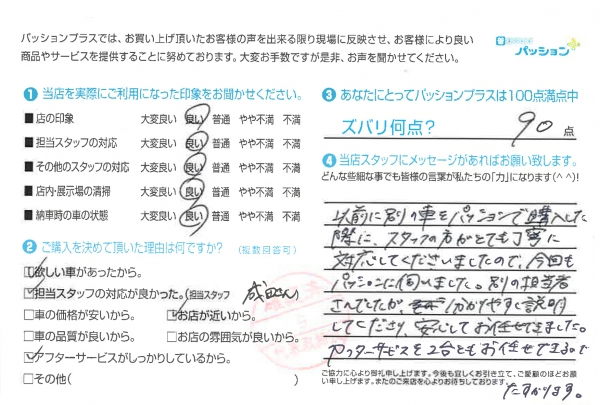 パッションプラスでは、お買い上げ頂いたお客様の声を出来る限り現場に反映させ、お客様により良い
商品やサービスを提供することに努めております。大変お手数ですが是非、お声を聞かせてください。
パッション
❶ 当店を実際にご利用になった印象をお聞かせください。
■店の印象 大変良い 良い 普通 やや不満 不満
■担当スタッフの対応 大変良い 良い 普通 やや不満 不満
■その他のスタッフの対応 大変良い 良い 普通 やや不満 不満
■店内・展示場の清掃 大変良い 良い 普通 やや不満 不満
■納車時の車の状態 大変良い 良い 普通 やや不満 不満
❷ ご購入を決めて頂いた理由は何ですか? (複数回答可)
☑欲しい車があったから。
☑担当スタッフの対応が良かった。(担当スタッフ 成田さん)
□車の価格が安いから。 ☑お店が近いから。
□車の品質が良いから。 □お店の雰囲気が良いから。
☑アフターサービスがしっかりしているから。
□その他( )
❸ あなたにとってパッションプラスは100点満点中
ズバリ何点? 90点
❹ 当店スタッフにメッセージがあればお願い致します。
どんな些細な事でも皆様の言葉が私たちの「力」になります(^^)!
以前に別の車をパッションで購入した
際に、スタッフの方がとても丁寧に
対応してくださいましたので、今回も
パッションに伺いました。別の担当者
さんでしたが、分かりやすく説明
してくださり、安心してお任せできました。
アフターサービスを2台ともお任せできるので
たすかります。
ご協力に心より御礼申し上げます。今後も宜しくお引き立て、ご愛顧のほどお願
い申し上げます。またのご来店を心よりお待ちしております。